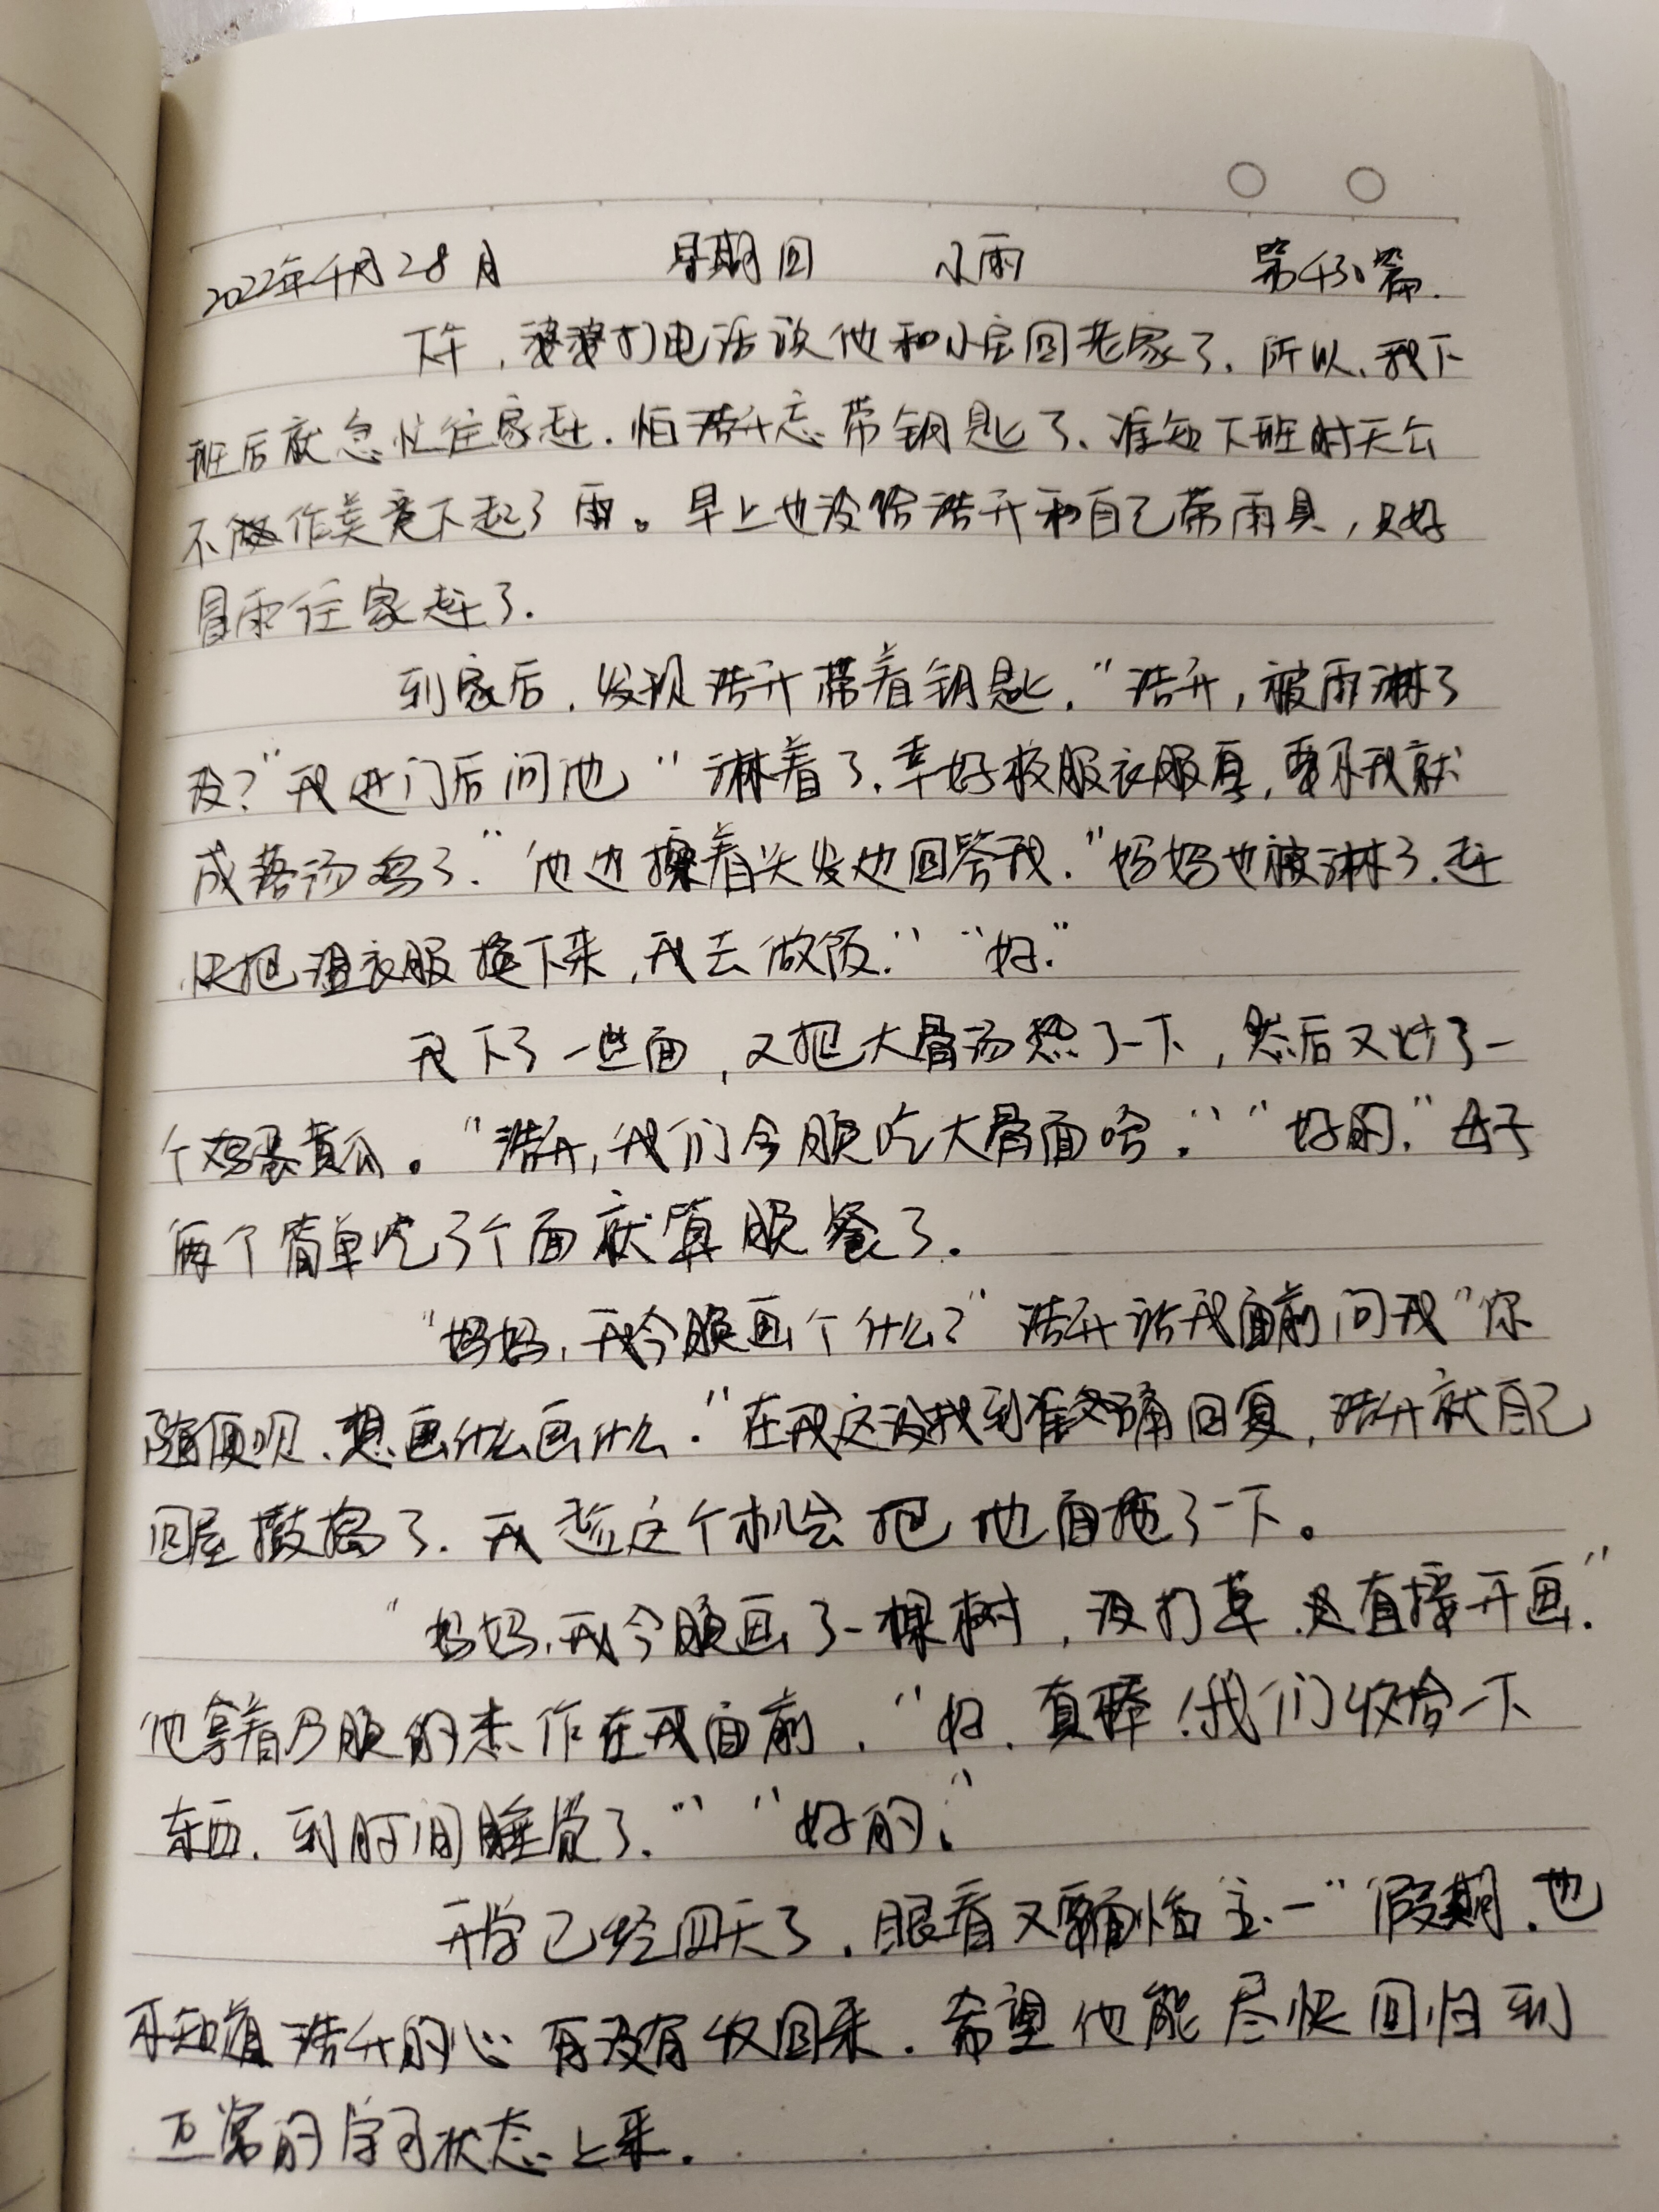 2022年4月28日 星期四 小雨 第430篇.
下午,婆婆打电话说他和小宝回老家了.所以,我下
班后就急忙往家赶.怕浩升忘带钥匙了、谁知下班时天公
不作美竟下起了雨。早上也没给浩升和自己带雨具,只好
冒雨往家赶了.
到家后,发现浩升带着钥匙."浩升,被雨淋了
没?"我进门后问他"淋着了.幸好校服衣服厚,要不我就
成落汤鸡了."他边擦着头发边回答我."妈妈也被淋了.赶
快把湿衣服换下来,我去做饭.""好."
我下了一些面,又把大骨汤热了一下,然后又炒了一
个鸡蛋黄瓜。"浩升,我们今晚吃大骨面哈.""好的."母子
俩个简单吃了个面就算晚餐了.
"妈妈,我今晚画个什么?"浩升站我面前问我"你
随便呗、想画什么画什么."在我这没找到准确回复,浩升就自己
回屋鼓捣了.我趁这个机会把地面拖了一下。
"妈妈,我今晚画了一棵树,没打草.是直接开画."
他拿着今晚的杰作在我面前."好、真棒!我们收拾一下
东西.到时间睡觉了.""好的."
开学已经四天了.眼看又要面临"五.一"假期.也
不知道浩升的心有没有收回来.希望他能尽快回归到
正常的学习状态上来.